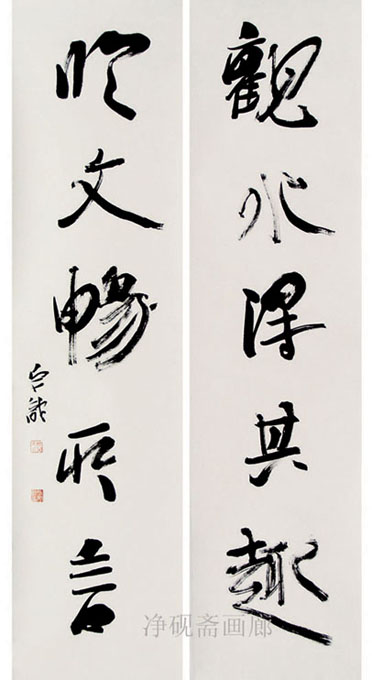 觀水得其趣
臨文暢所言
净砚斋画廊